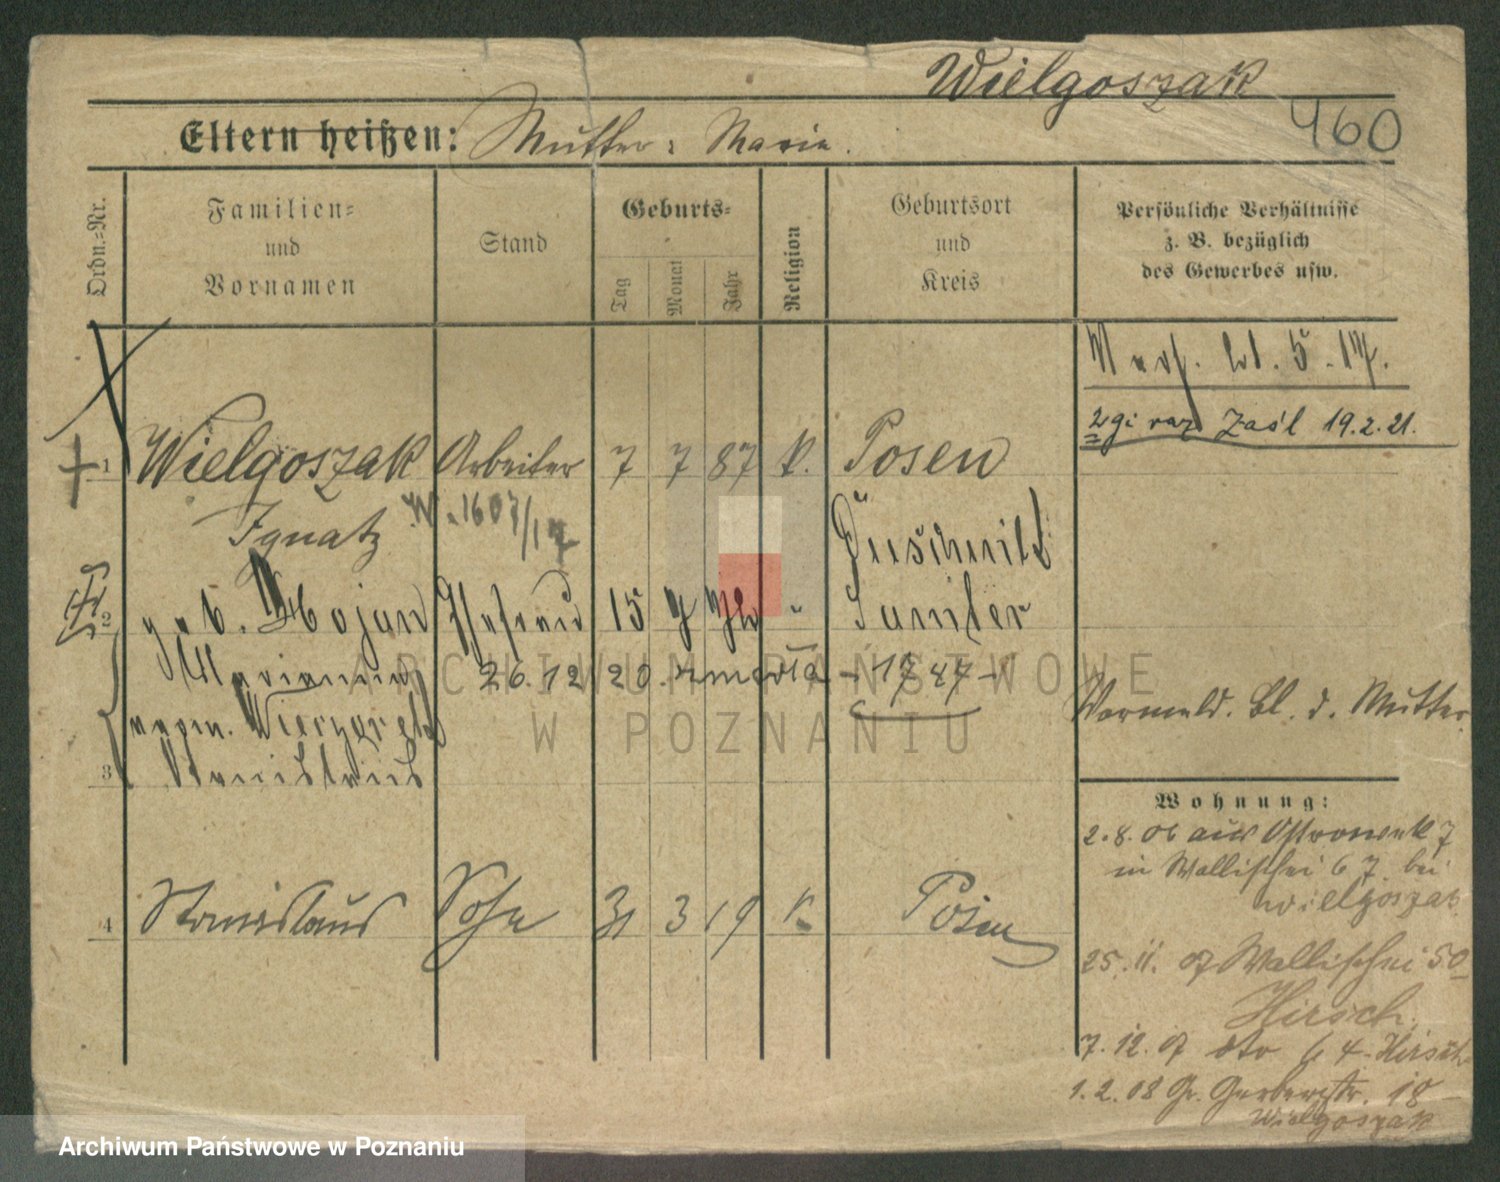 Wielgoszak
460
Eltern heißen: Mutter: Marie.
Ordn.-Nr.
Familien- und Vornamen
Stand
Geburts-
Tag Monat Jahr
Religion
Geburtsort und Kreis
Persönliche Verhältnisse
z. B. bezüglich
des Gewerbes usw.
5.17.
zaśl 19.2.21.
1 Wielgoszak Arbeiter 7 7 87 k. Posen
Ignatz 1607/17
2 geb. Ehefrau 15 7 "
Samter
26.12 20. zmarła - 1787 -
Marianna
Vormuld. Bl. d. Mutter
3 Stanislaus
4 Stanislaus Sohn 31 3 19 k. Posen
Wohnung:
2.8.06 aus Ostrowek 7
in Wallischei 67 bei
Wielgoszak
25.11.07 Wallischei 50
Hirsch
7.12.07 dto 64 Hirsch
1.2.08 Gr. Gerberstr. 18
Wielgoszak
ARCHIWUM PAŃSTWOWE
W POZNANIU
Archiwum Państwowe w Poznaniu